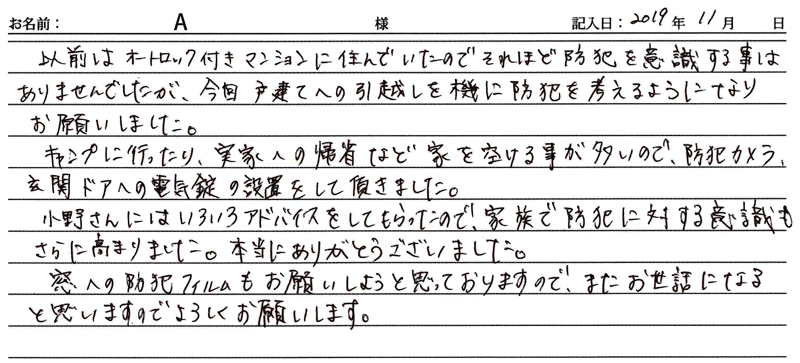 お名前： A 様 記入日：2019年 11月 日
以前はオートロック付きマンションに住んでいたのでそれほど防犯を意識する事は
ありませんでしたが、今回戸建てへの引越しを機に防犯を考えるようになり
お願いしました。
キャンプに行ったり、実家への帰省など家を空ける事が多いので、防犯カメラ、
玄関ドアへの電気錠の設置をして頂きました。
小野さんにはいろいろアドバイスをしてもらったので、家族で防犯に対する意識も
さらに高まりました。本当にありがとうございました。
窓への防犯フィルムもお願いしようと思っておりますので、またお世話になる
と思いますのでよろしくお願いします。